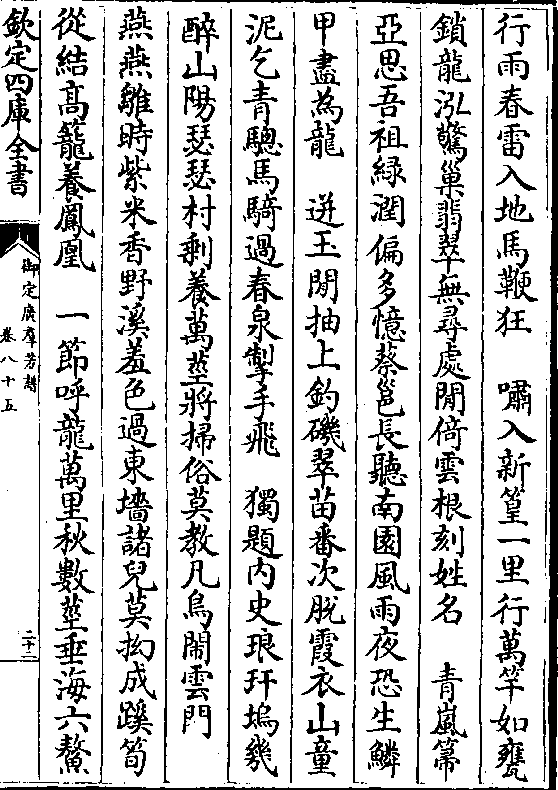 行雨春雷入地馬鞭狂　嘯入新篁一里行萬竿如甕
鎖龍泓驚巢翡翠無尋處閒倚雲根刻姓名　青嵐箒
亞思吾祖緑潤偏多憶蔡邕長聽南園風雨夜恐生鱗
甲盡為龍　迸玉閒抽上釣磯翠苗番次脫霞衣山童
泥乞青驄馬騎過春泉掣手飛　獨題内史琅玕塢幾
醉山陽瑟瑟村剩養萬莖將掃俗莫教凡鳥鬧雲門
燕燕雛時紫米香野溪羞色過東墻諸兒莫拗成蹊筍
從結高籠養鳳凰　一節呼龍萬里秋數莖垂海六鰲
欽定四庫全書
御定廣羣芳譜
卷八十五
二十二